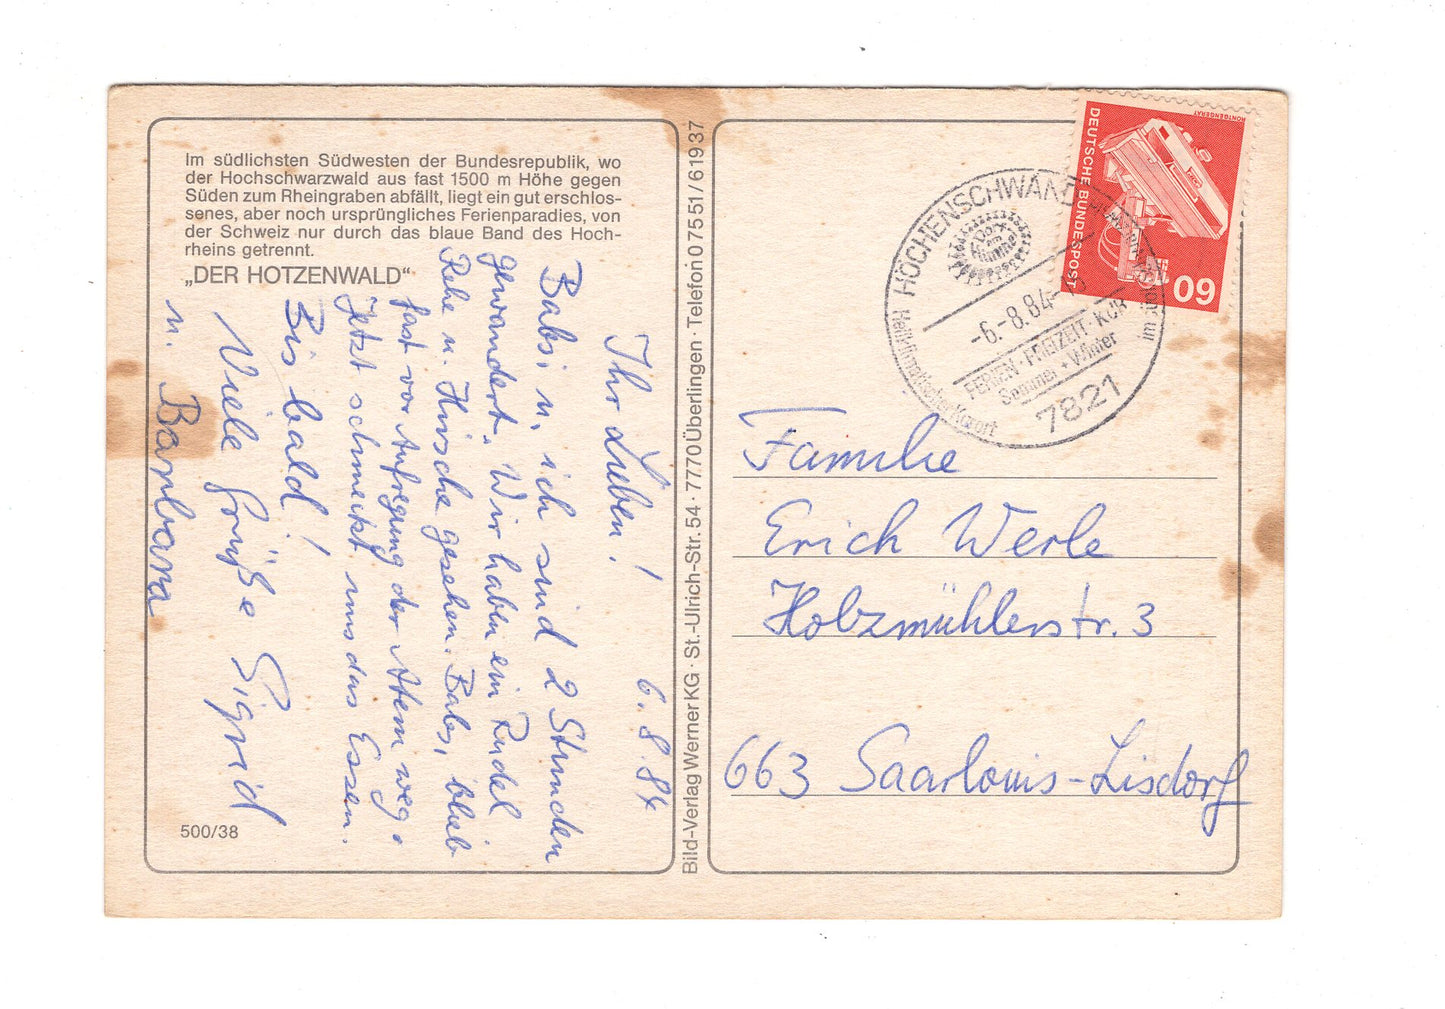 Im südlichsten Südwesten der Bundesrepublik, wo
der Hochschwarzwald aus fast 1500 m Höhe gegen
Süden zum Rheingraben abfällt, liegt ein gut erschlos-
senes, aber noch ursprüngliches Ferienparadies, von
der Schweiz nur durch das blaue Band des Hoch-
rheins getrennt.
„DER HOTZENWALD“
6.8.84
Ihr Lieben!
Babsi u. ich sind 2 Stunden
gewandert. Wir haben ein Rudel
Rehe u. Hirsche gesehen. Babsi blieb
fast vor Aufregung der Atem weg.
Jetzt schmeckt uns das Essen.
Bis bald!
Viele Grüße Sigrid
u. Barbara
500/38
Bild-Verlag Werner KG · St.-Ulrich-Str. 54 · 7770 Überlingen · Telefon 07551/61937
HÖCHENSCHWAND
Dorf
am
Himmel
-6.-8.84
FERIEN·FREIZEIT·KUR
Sommer + Winter
7821
Heilklimatischer Kurort
im
RÖNTGENGERÄT
DEUTSCHE BUNDESPOST
60
Familie
Erich Werle
Holzmühlerstr. 3
663 Saarlouis-Lisdorf